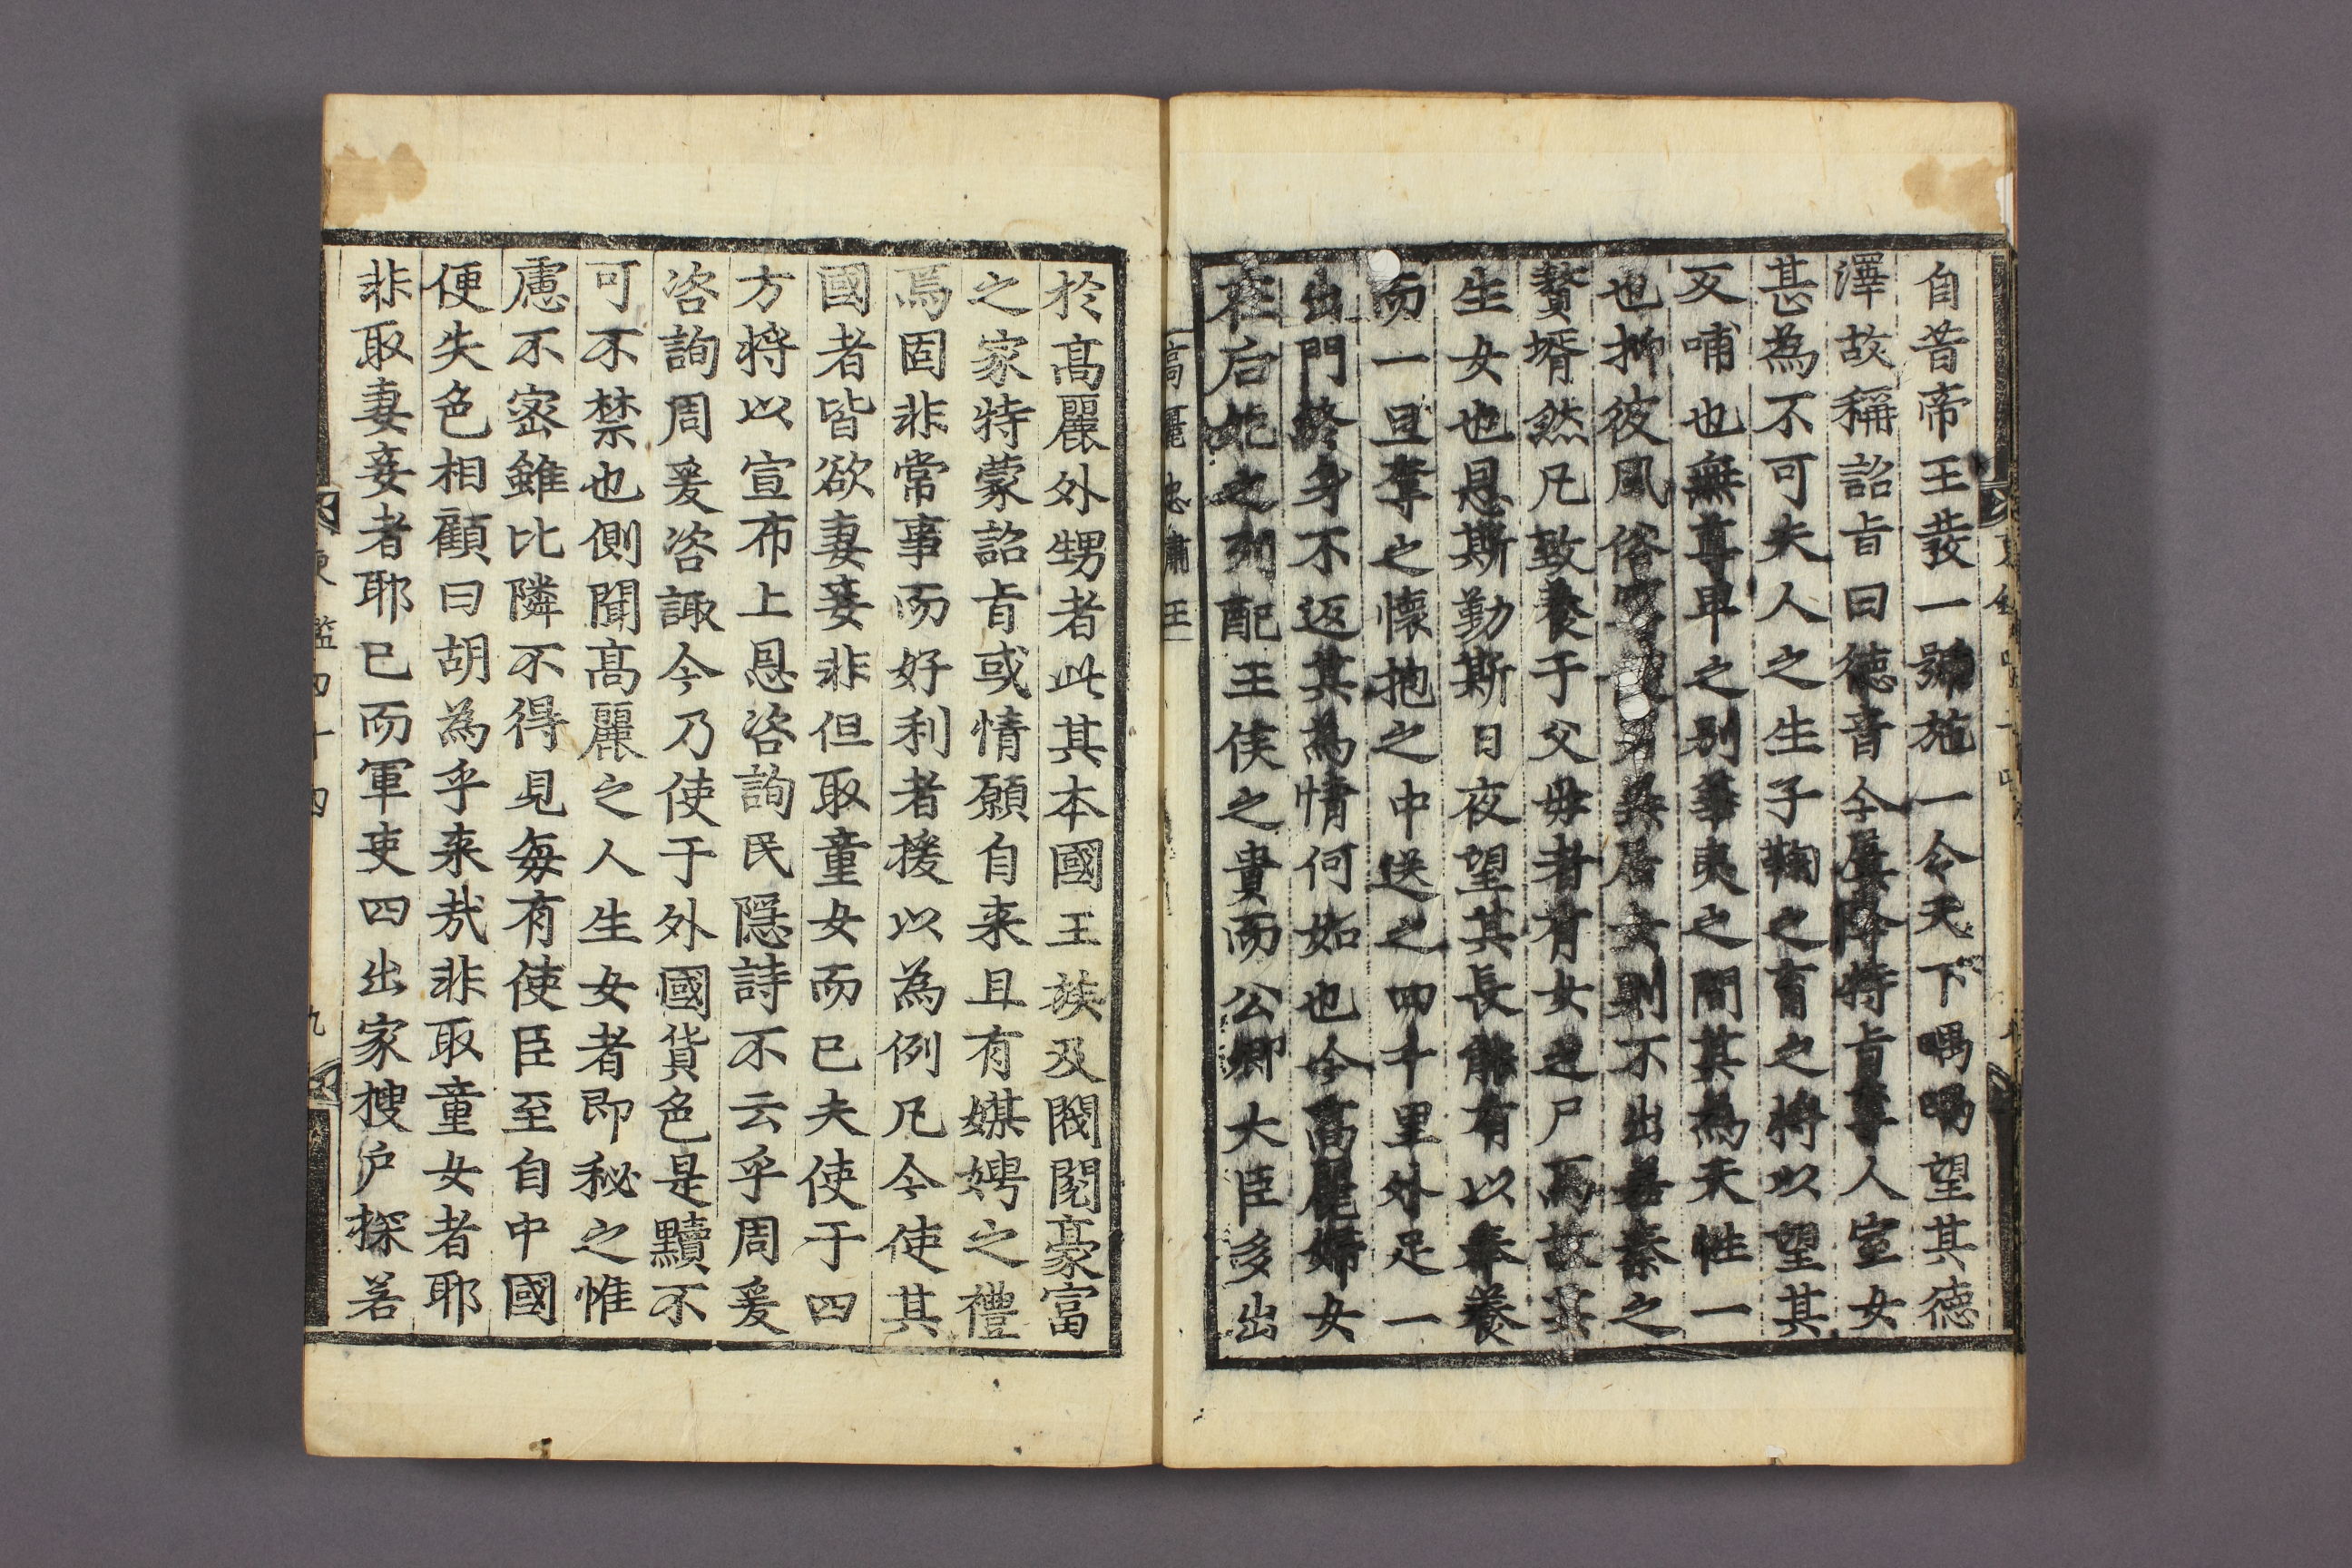 自昔帝王發一號施一令天下喁喁望其德
澤故稱詔旨曰德音今屢降特旨奪人室女
甚為不可夫人之生子鞠之育之將以望其
反哺也無尊卑之別華夷之間其為天性一
也抑彼風俗寧使男異居女則不出若秦之
贅壻然凡致養于父母者有女之尸焉故其
生女也恩斯勤斯日夜望其長能有以奉養
而一旦奪之懷抱之中送之四千里外足一
出門終身不返其為情何如也今高麗婦女
在后妃之列配王侯之貴而公卿大臣多出
高麗忠肅王
於高麗外甥者此其本國王族及閥閱豪富
之家特蒙詔旨或情願自来且有媒娉之禮
焉固非常事而好利者援以為例凡今使其
國者皆欲妻妾非但取童女而已夫使于四
方將以宣布上恩咨詢民隱詩不云乎周爰
咨詢周爰咨諏今乃使于外國貨色是黷不
可不禁也側聞高麗之人生女者即秘之惟
慮不密雖比隣不得見每有使臣至自中國
便失色相顧曰胡為乎来哉非取童女者耶
非取妻妾者耶已而軍吏四出家搜戶探若
東鑑四十四 九